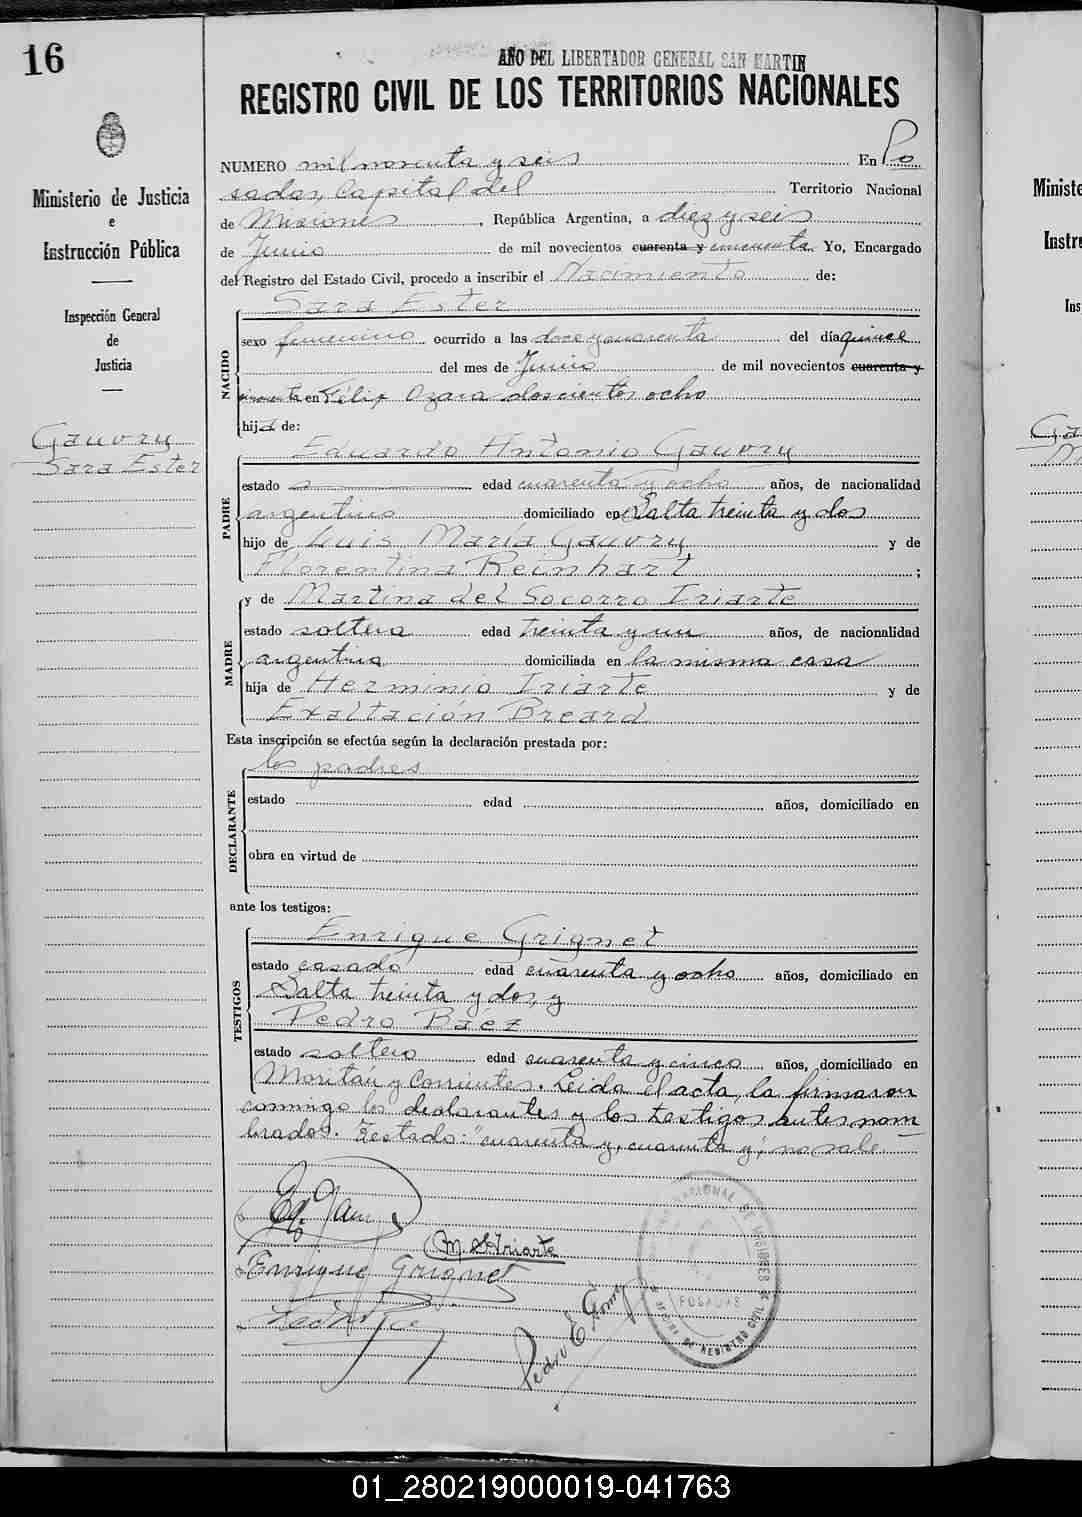 16
AÑO DEL LIBERTADOR GENERAL SAN MARTIN
REGISTRO CIVIL DE LOS TERRITORIOS NACIONALES
Ministerio de Justicia
e
Instrucción Pública
Inspección General
de
Justicia
Gauvry
Sara Ester
NUMERO mil noventa y seis En Po
sadas, Capital del Territorio Nacional
de Misiones, República Argentina, a diez y seis
de Junio de mil novecientos cuarenta y cincuenta. Yo, Encargado
del Registro del Estado Civil, procedo a inscribir el Nacimiento de:
Sara Ester
NACIDO
sexo femenino ocurrido a las doce y cuarenta del día quince
del mes de Junio de mil novecientos cuarenta y
cincuenta en Félix Azara doscientos ocho
hija de:
Eduardo Antonio Gauvry
PADRE
estado s edad cuarenta y ocho años, de nacionalidad
argentino domiciliado en Salta treinta y dos
hijo de Luis María Gauvry y de
Florentina Reinhart ;
MADRE
y de Martina del Socorro Iriarte
estado soltera edad treinta y un años, de nacionalidad
argentina domiciliada en la misma casa
hija de Herminio Iriarte y de
Exaltación Breard
Esta inscripción se efectúa según la declaración prestada por:
los padres
DECLARANTE
estado edad años, domiciliado en
obra en virtud de
ante los testigos:
TESTIGOS
Enrique Grignet
estado casado edad cuarenta y ocho años, domiciliado en
Salta treinta y dos, y
Pedro Báez
estado soltero edad cuarenta y cinco años, domiciliado en
Moritán y Corrientes. Leida el acta, la firmaron
conmigo los declarantes y los testigos antes nom
brados. Testado: "cuarenta y, cuarenta y", no vale.
M. S. Iriarte
Enrique Grignet
Pedro E. Gómez
POSADAS
Ministe
Instru
Ins
Ga
01_280219000019-041763